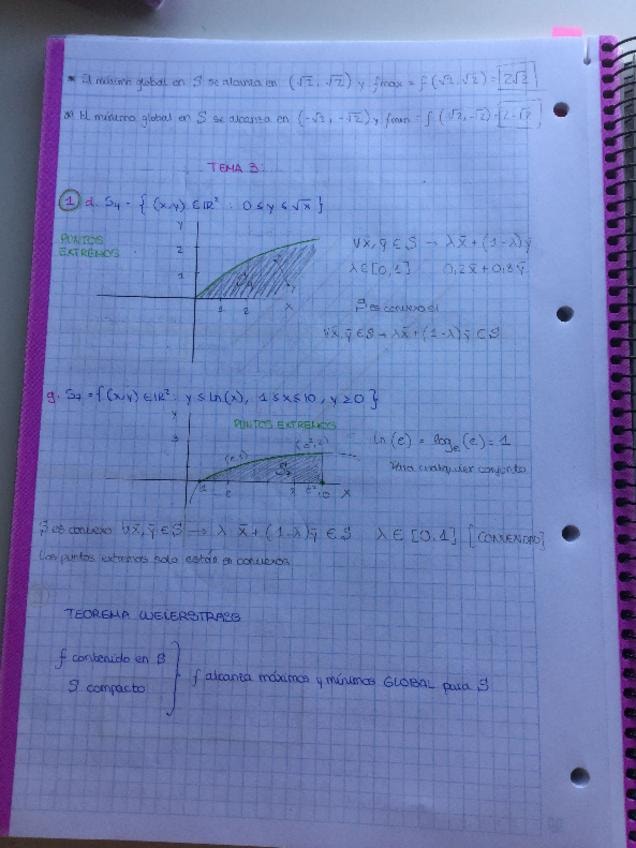 * El máximo global en S se alcanza en (√2, √2) y fmax = f(√2, √2) = 2√2
* El mínimo global en S se alcanza en (-√2, -√2) y fmin = f(√2, -√2) =
TEMA 3:
1 d. S4 = { (x,y) ∈ IR² : 0 ≤ y ≤ √x }
PUNTOS EXTREMOS
y
2
1
S4
1 2 x
∀x̄, ȳ ∈ S → λx̄ + (1-λ)ȳ
λ ∈ [0,1] 0,2x̄ + 0,8ȳ
S es convexo si
∀x̄, ȳ ∈ S → λx̄ + (1-λ)ȳ ∈ S
g. S7 = { (x,y) ∈ IR² : y ≤ Ln(x), 1 ≤ x ≤ 10, y ≥ 0 }
y
PUNTOS EXTREMOS
(e,1) (e²,2)
S7
1 e e² 10 x
Ln(e) = loge(e) = 1
Para cualquier conjunto
S es convexo ∀x̄, ȳ ∈ S → λ x̄ + (1-λ)ȳ ∈ S λ ∈ [0,1]
Los puntos extremos solo están en convexos
TEOREMA WEIERSTRASS
f contenido en S
S compacto
f alcanza máximos y mínimos GLOBAL para S